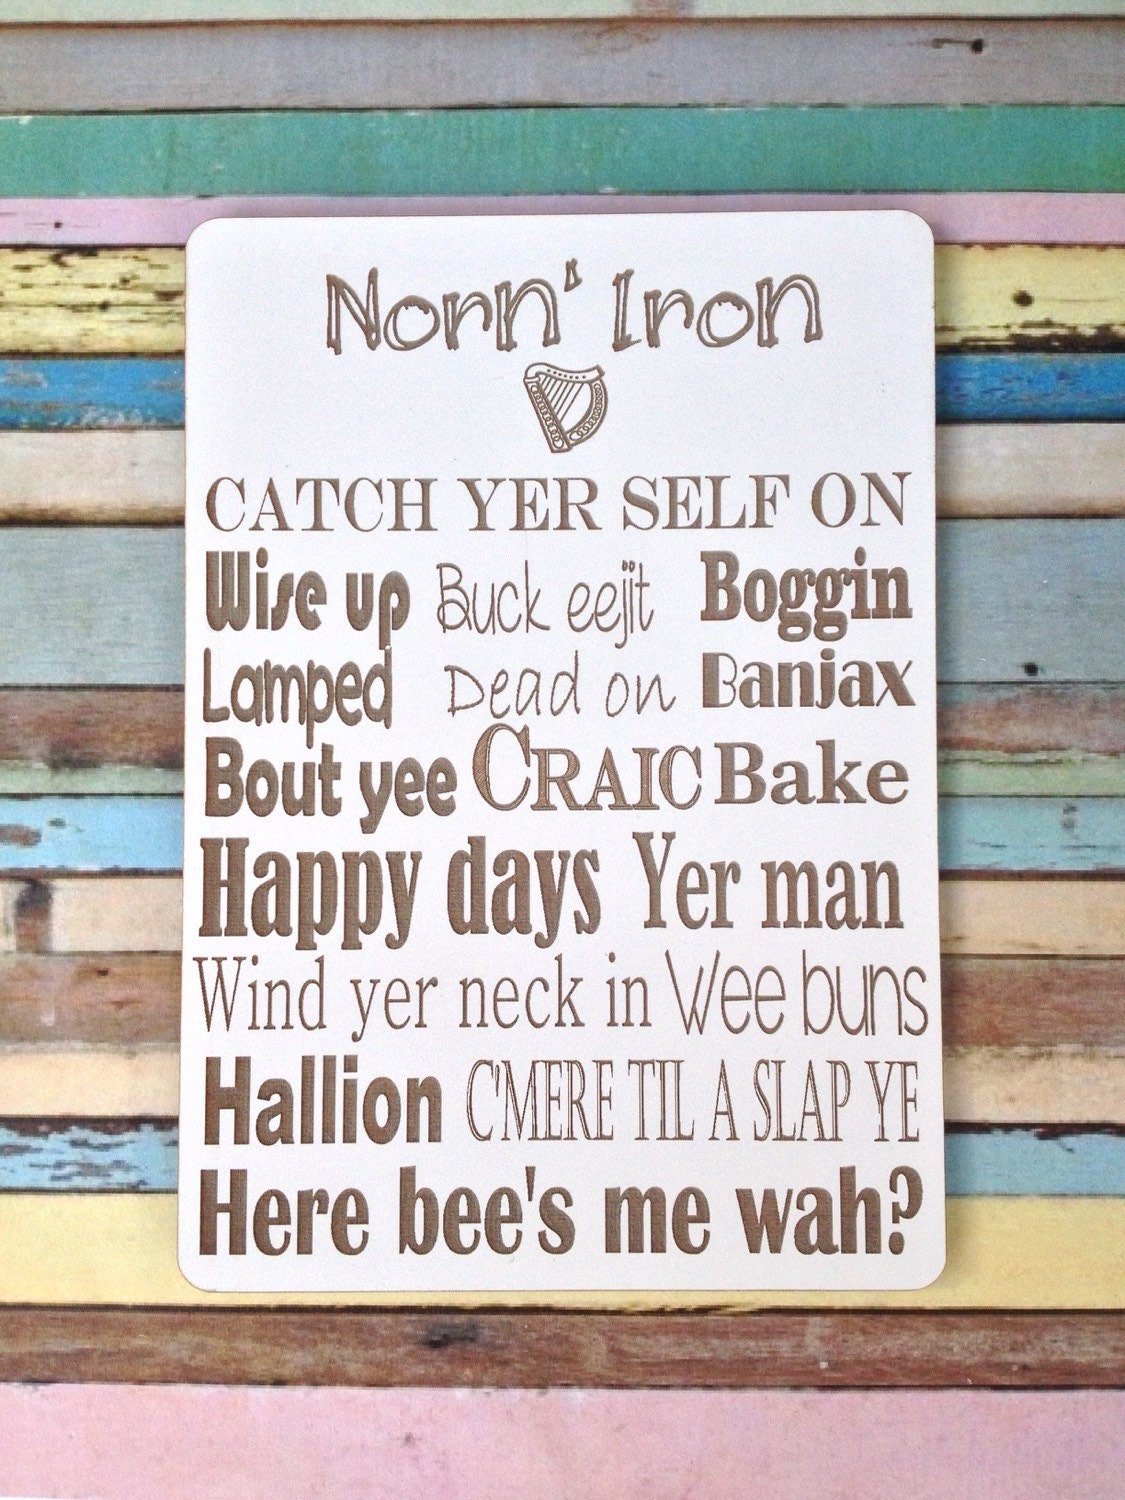 Norn' Iron
CATCH YER SELF ON
Wise up Buck eejit Boggin
Lamped Dead on Banjax
Bout yee CRAIC Bake
Happy days Yer man
Wind yer neck in Wee buns
Hallion C'MERE TIL A SLAP YE
Here bee's me wah?